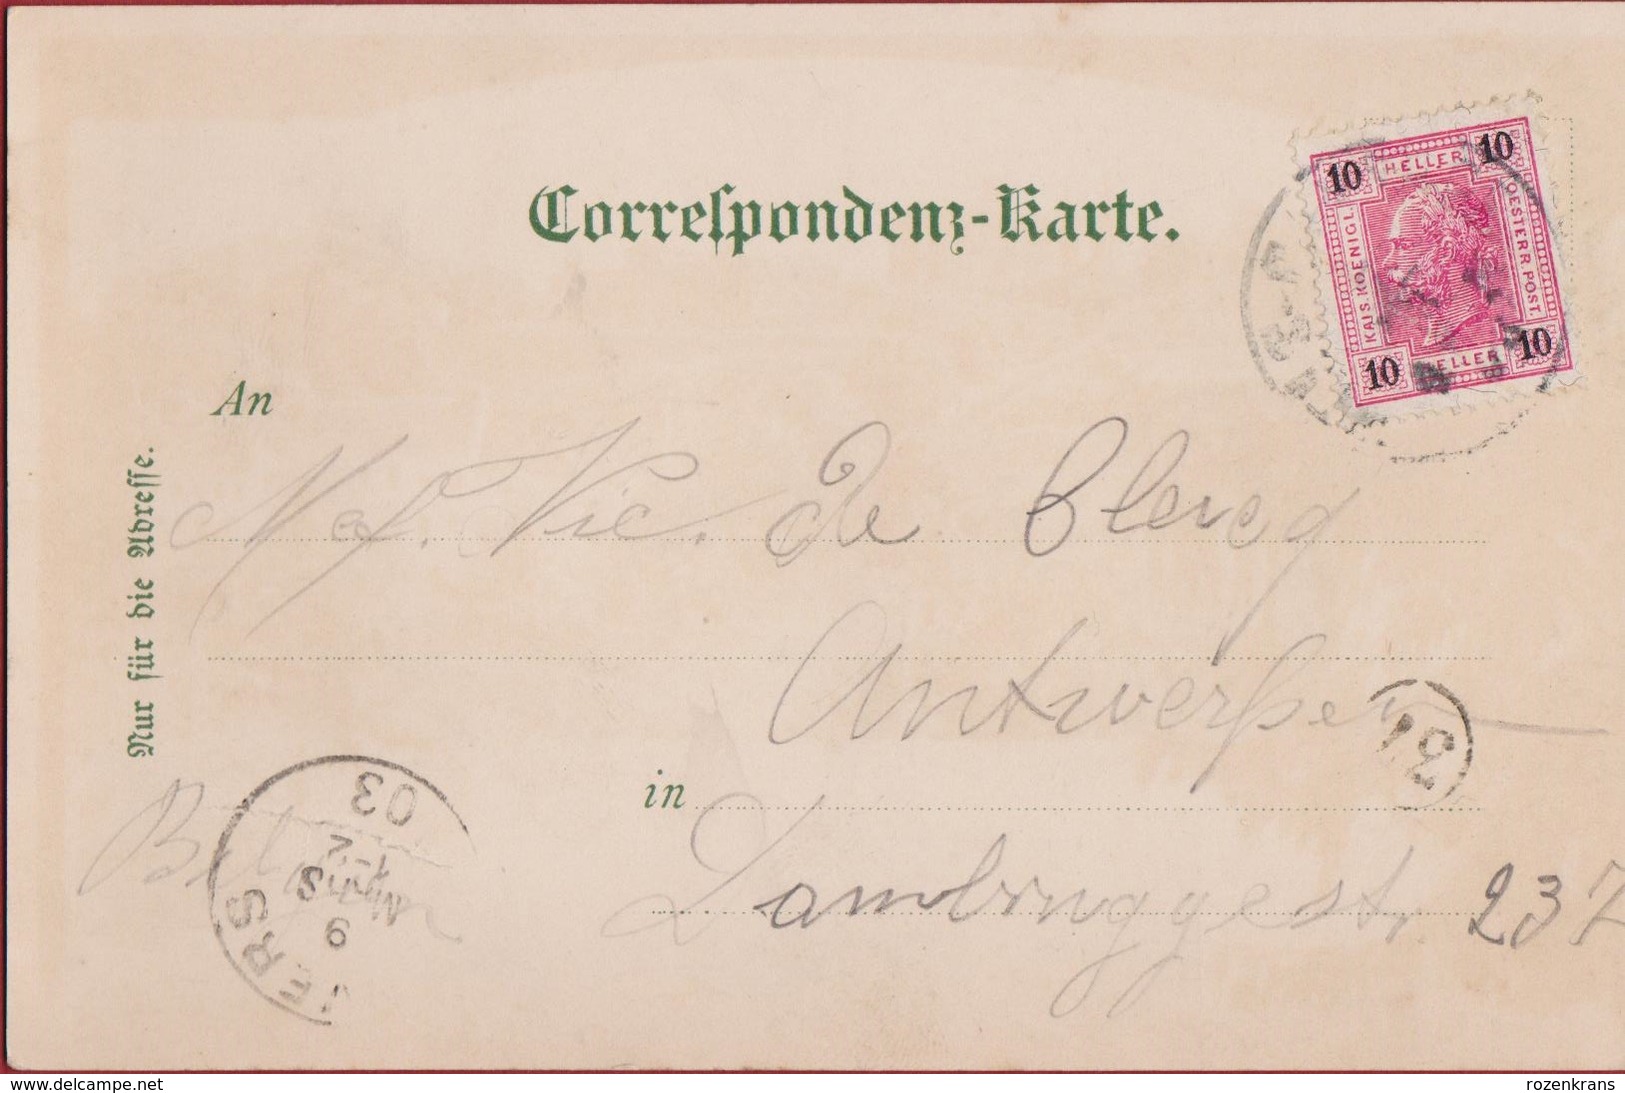 Correspondenz-Karte.
10 HELLER 10
KAIS. KOENIGL.
OESTERR. POST
10 HELLER 10
An
Nur für die Adresse.
Vic. de Clercq
Antwerpen
31
in
Lambruggestr, 237
Belgien
03
9 S
ERS
www.delcampe.net
rozenkrans